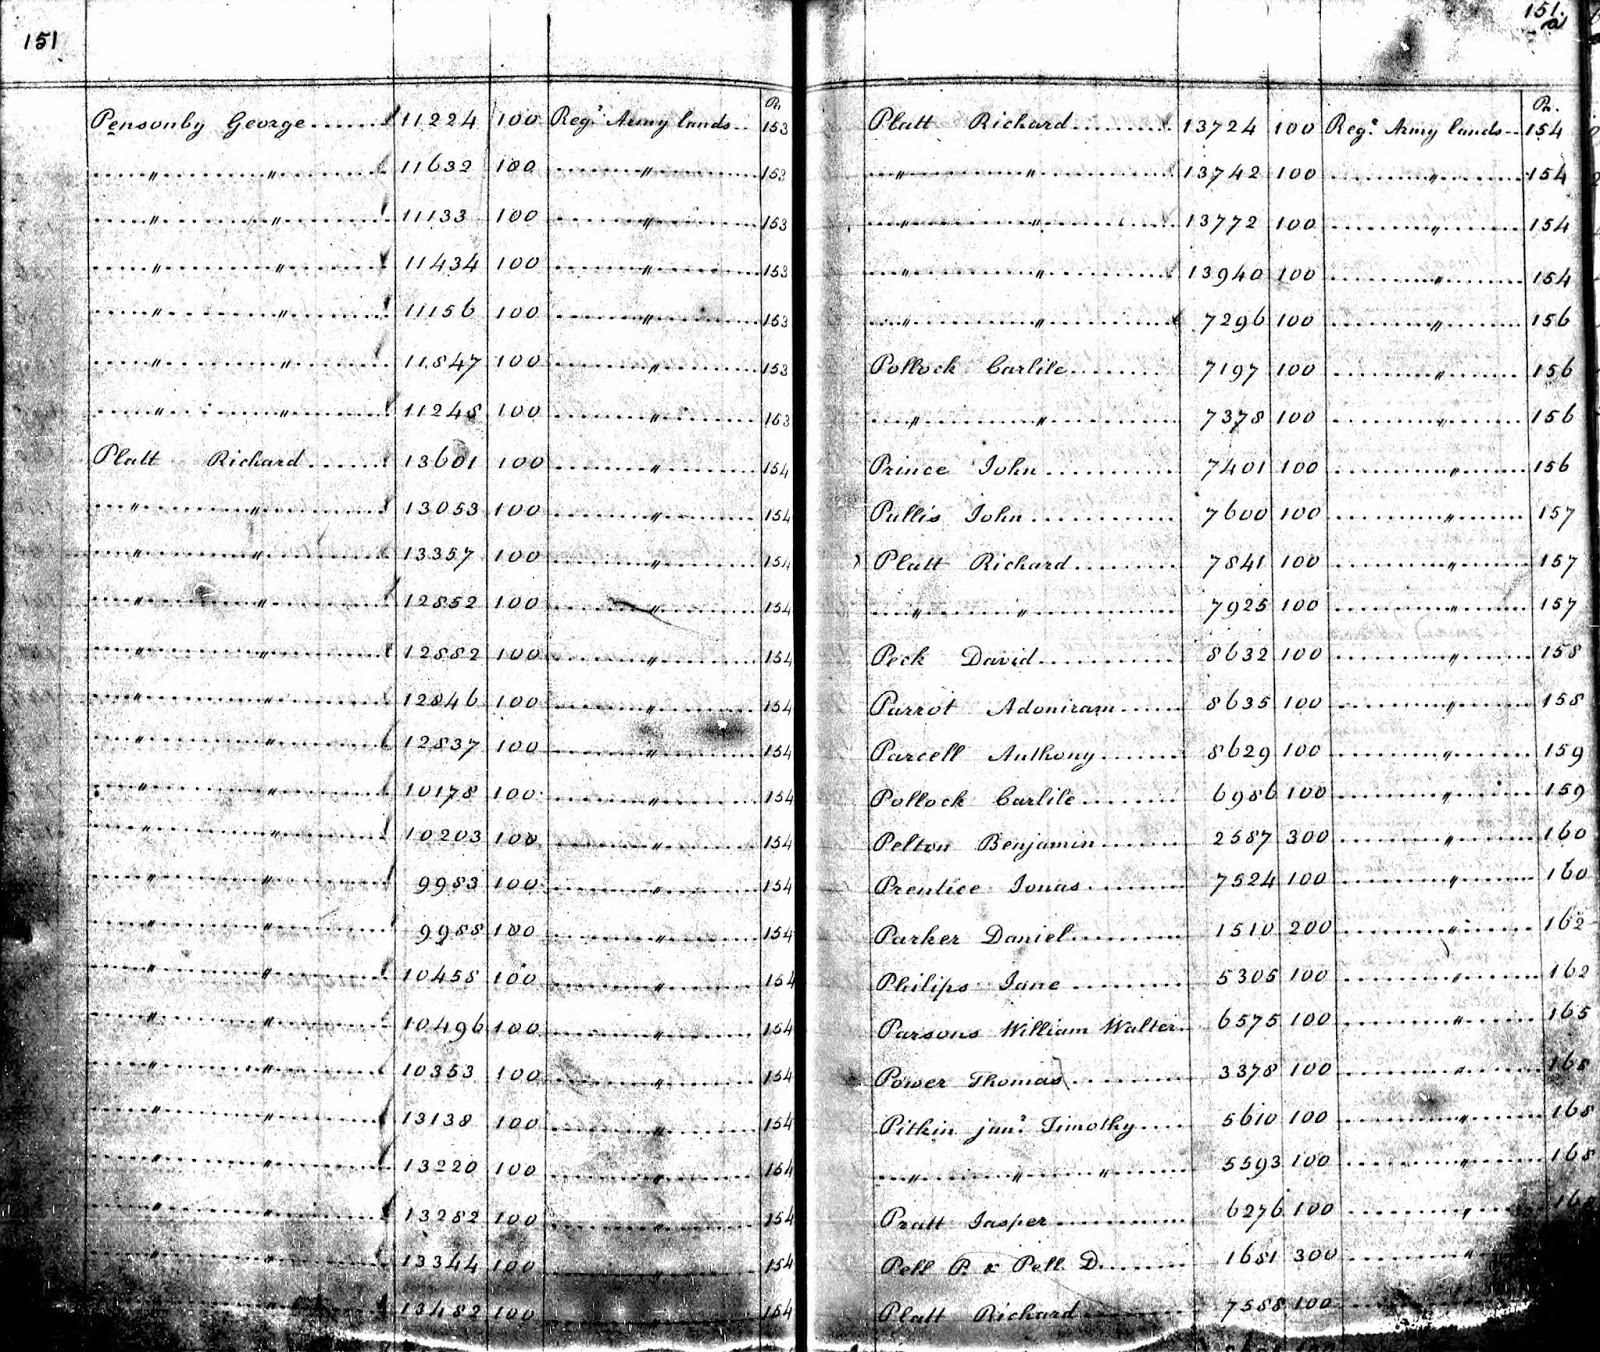 151
Pr.
Pensonby George........ 11224 100 Regr. Army lands.. 153
" " 11632 100 " 153
" " 11133 100 " 153
" " 11434 100 " 153
" " 11156 100 " 153
" " 11847 100 " 153
" " 11248 100 " 153
Platt Richard........ 13601 100 " 154
" " 13053 100 " 154
" " 13357 100 " 154
" " 12852 100 " 154
" " 12882 100 " 154
" " 12846 100 " 154
" " 12837 100 " 154
" " 10178 100 " 154
" " 10203 100 " 154
" " 9983 100 " 154
" " 9988 100 " 154
" " 10458 100 " 154
" " 10496 100 " 154
" " 10353 100 " 154
" " 13138 100 " 154
" " 13220 100 " 154
" " 13282 100 " 154
" " 13344 100 " 154
" " 13482 100 " 154
151.
a
Pr.
Platt Richard........ 13724 100 Regr. Army lands.. 154
" " 13742 100 " 154
" " 13772 100 " 154
" " 13940 100 " 154
" " 7296 100 " 156
Pollock Carlile........ 7197 100 " 156
" " 7378 100 " 156
Prince John........ 7401 100 " 156
Pullis John........ 7600 100 " 157
Platt Richard........ 7841 100 " 157
" " 7925 100 " 157
Peck David........ 8632 100 " 158
Parrot Adoniram........ 8635 100 " 158
Parcell Anthony........ 8629 100 " 159
Pollock Carlile........ 6986 100 " 159
Pelton Benjamin........ 2587 300 " 160
Prentice Jonas........ 7524 100 " 160
Parker Daniel........ 1510 200 " 162
Philips Jane........ 5305 100 " 162
Parsons William Walter.. 6575 100 " 165
Power Thomas........ 3378 100 " 168
Pitkin junr. Timothy.... 5610 100 " 168
" " 5593 100 " 168
Pratt Jasper........ 6276 100 "
Pell P. & Pell D........ 1681 300 "
Platt Richard........ 7588 100